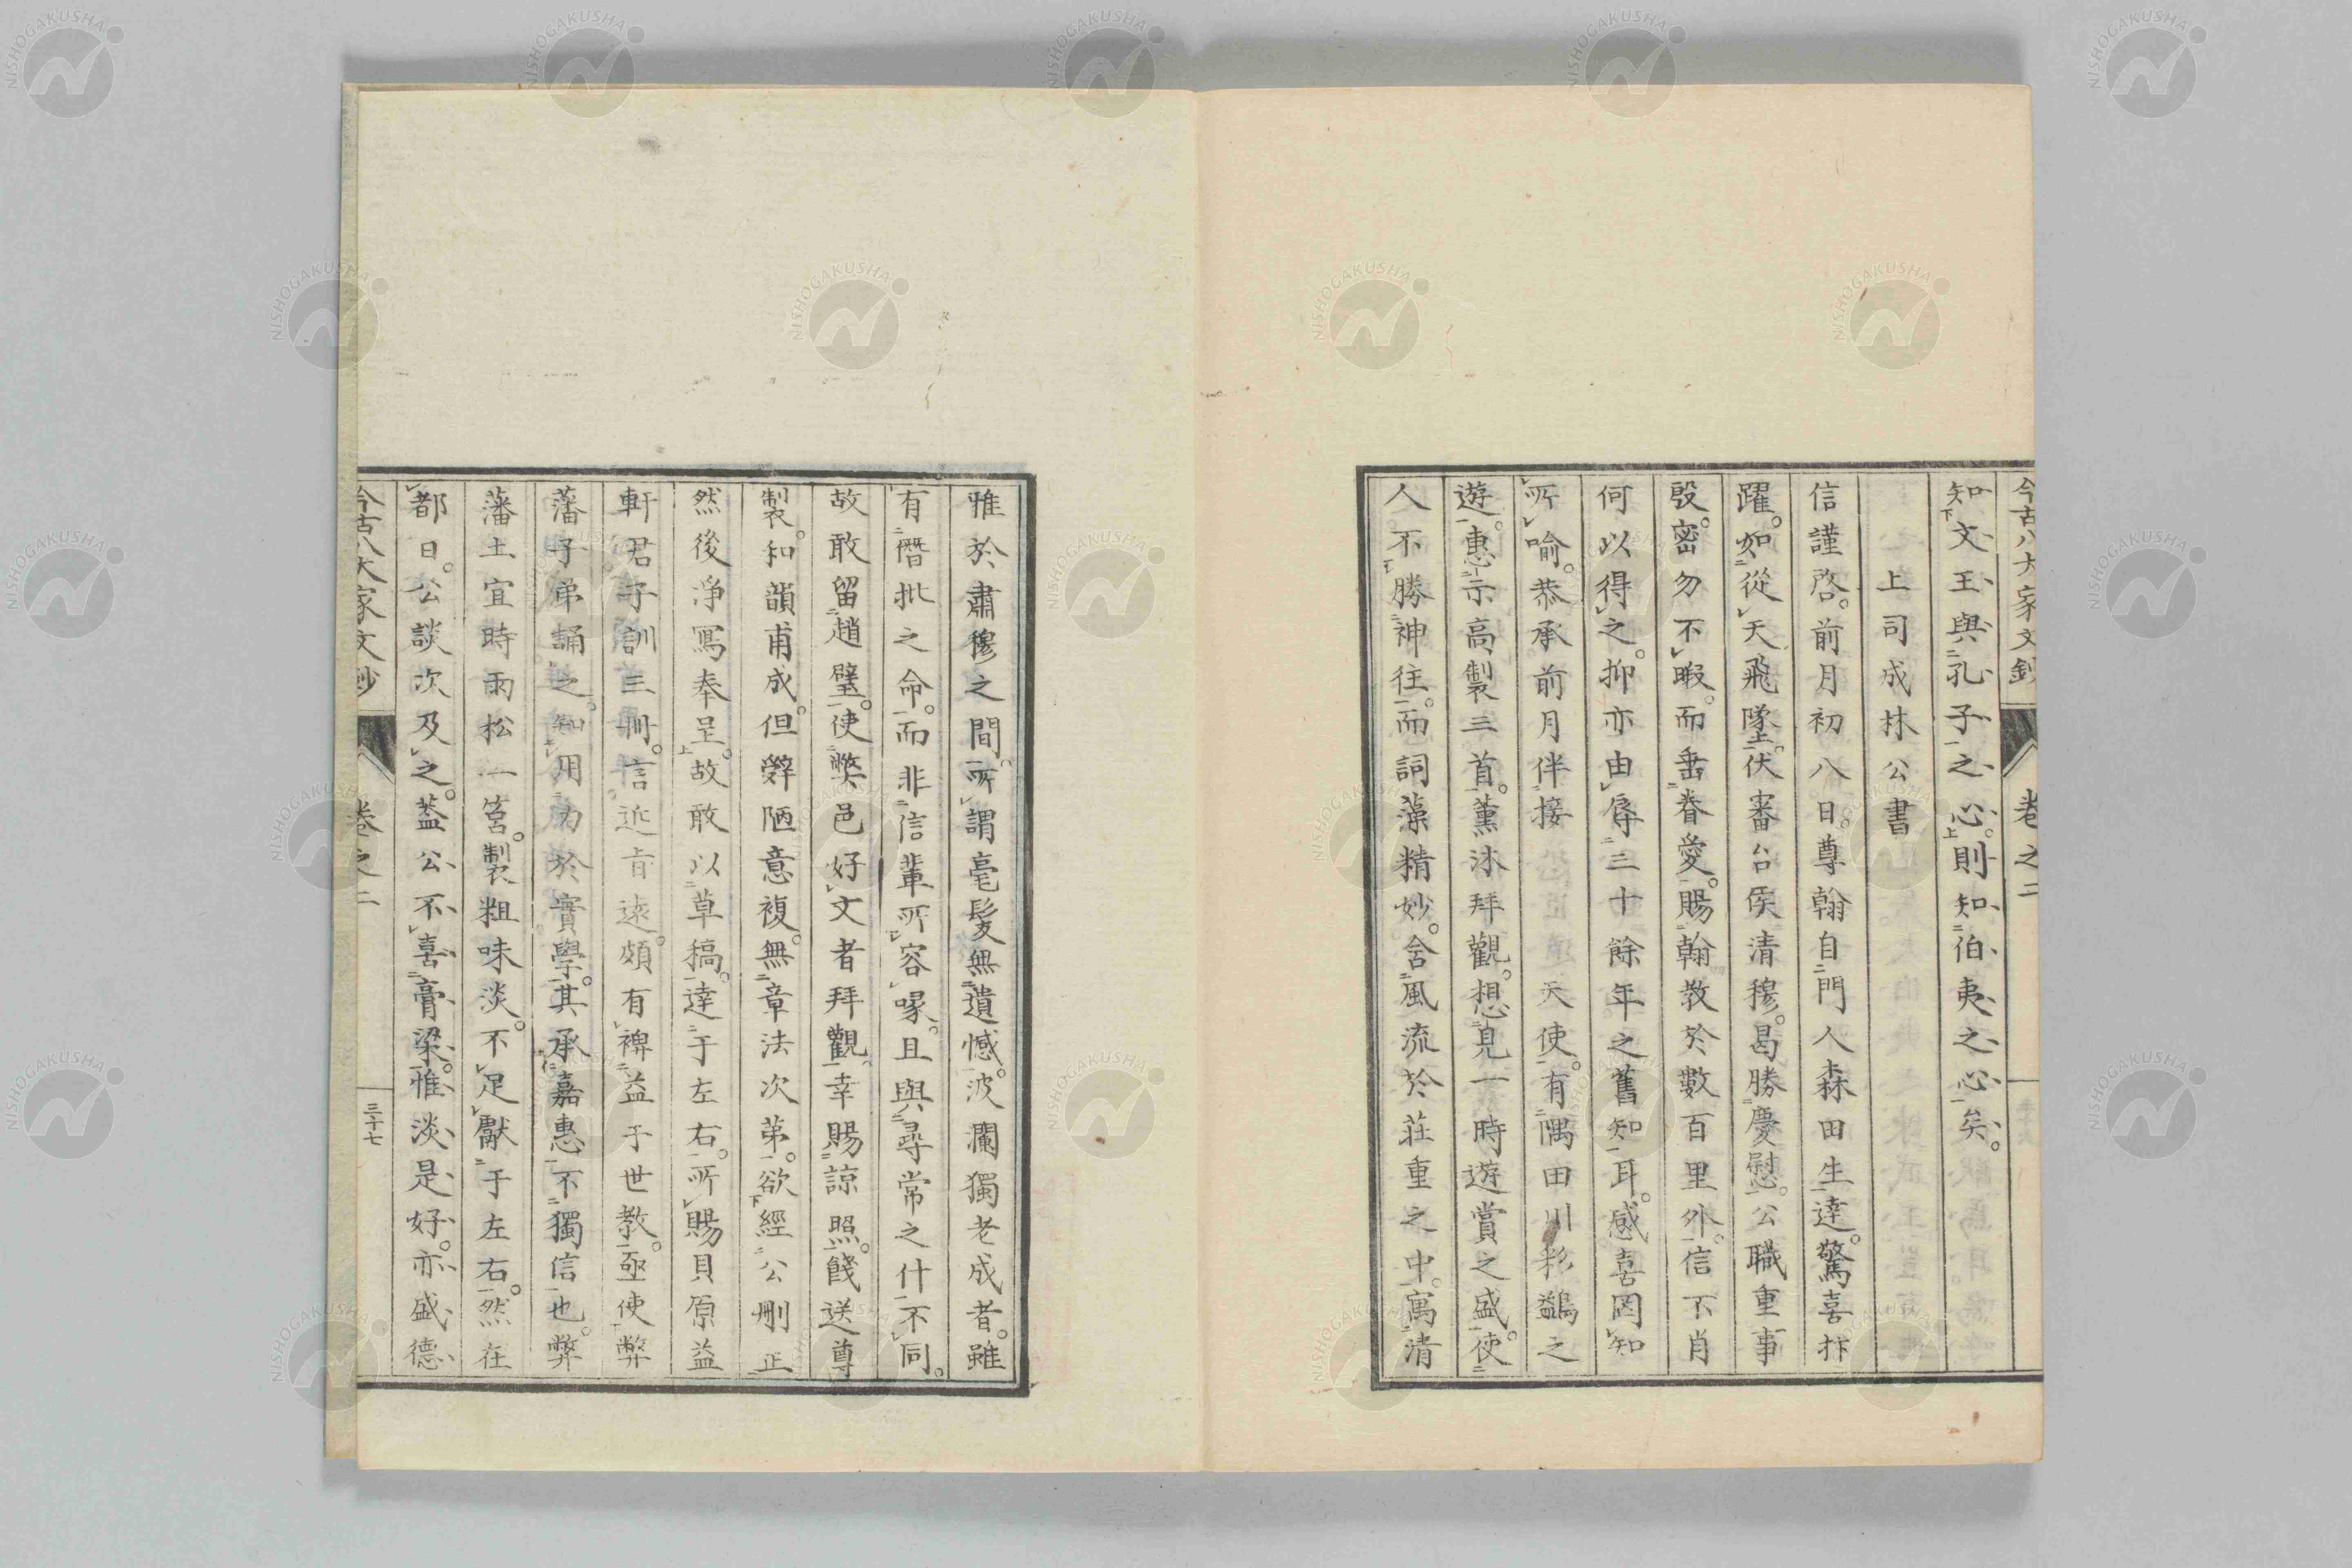 今古八大家文鈔 卷之二
知文王與孔子之心。則知伯夷之心矣。
上司成林公書
信謹啓。前月初八日。尊翰自門人森田生達。驚喜抃
躍。如從天飛墜。伏審台侯清穆。曷勝慶慰。公職重事
殷。密勿不暇。而垂眷愛。賜翰教於數百里外。信不肖
何以得之。抑亦由辱三十餘年之舊知耳。感喜罔知
所喻。恭承前月伴接天使。有隅田川彩鷁之
遊。惠示高製三首。薰沐拜觀。想見一時遊賞之盛。使
人不勝神往。而詞藻精妙。含風流於莊重之中。寓清
雅於肅穆之間。所謂毫髮無遺憾。波瀾獨老成者。雖
有僭批之命。而非信輩所容喙。且與尋常之什不同。
故敢留趙璧。使弊邑好文者拜觀。幸賜諒照。餞送尊
製。和韻甫成。但辭陋意複。無章法次第。欲經公刪正
然後淨寫奉呈。故敢以草稿達于左右。所賜貝原益
軒君子訓三冊。信近旨遠。頗有裨益于世教。亟使弊
藩子弟誦之。知用力於實學。其承嘉惠。不獨信也。弊
藩土宜時雨松一筥。製粗味淡。不足獻于左右。然在
都日。公談次及之。蓋公不喜膏粱。惟淡是好。亦盛德
今古八大家文鈔 卷之二 三十七